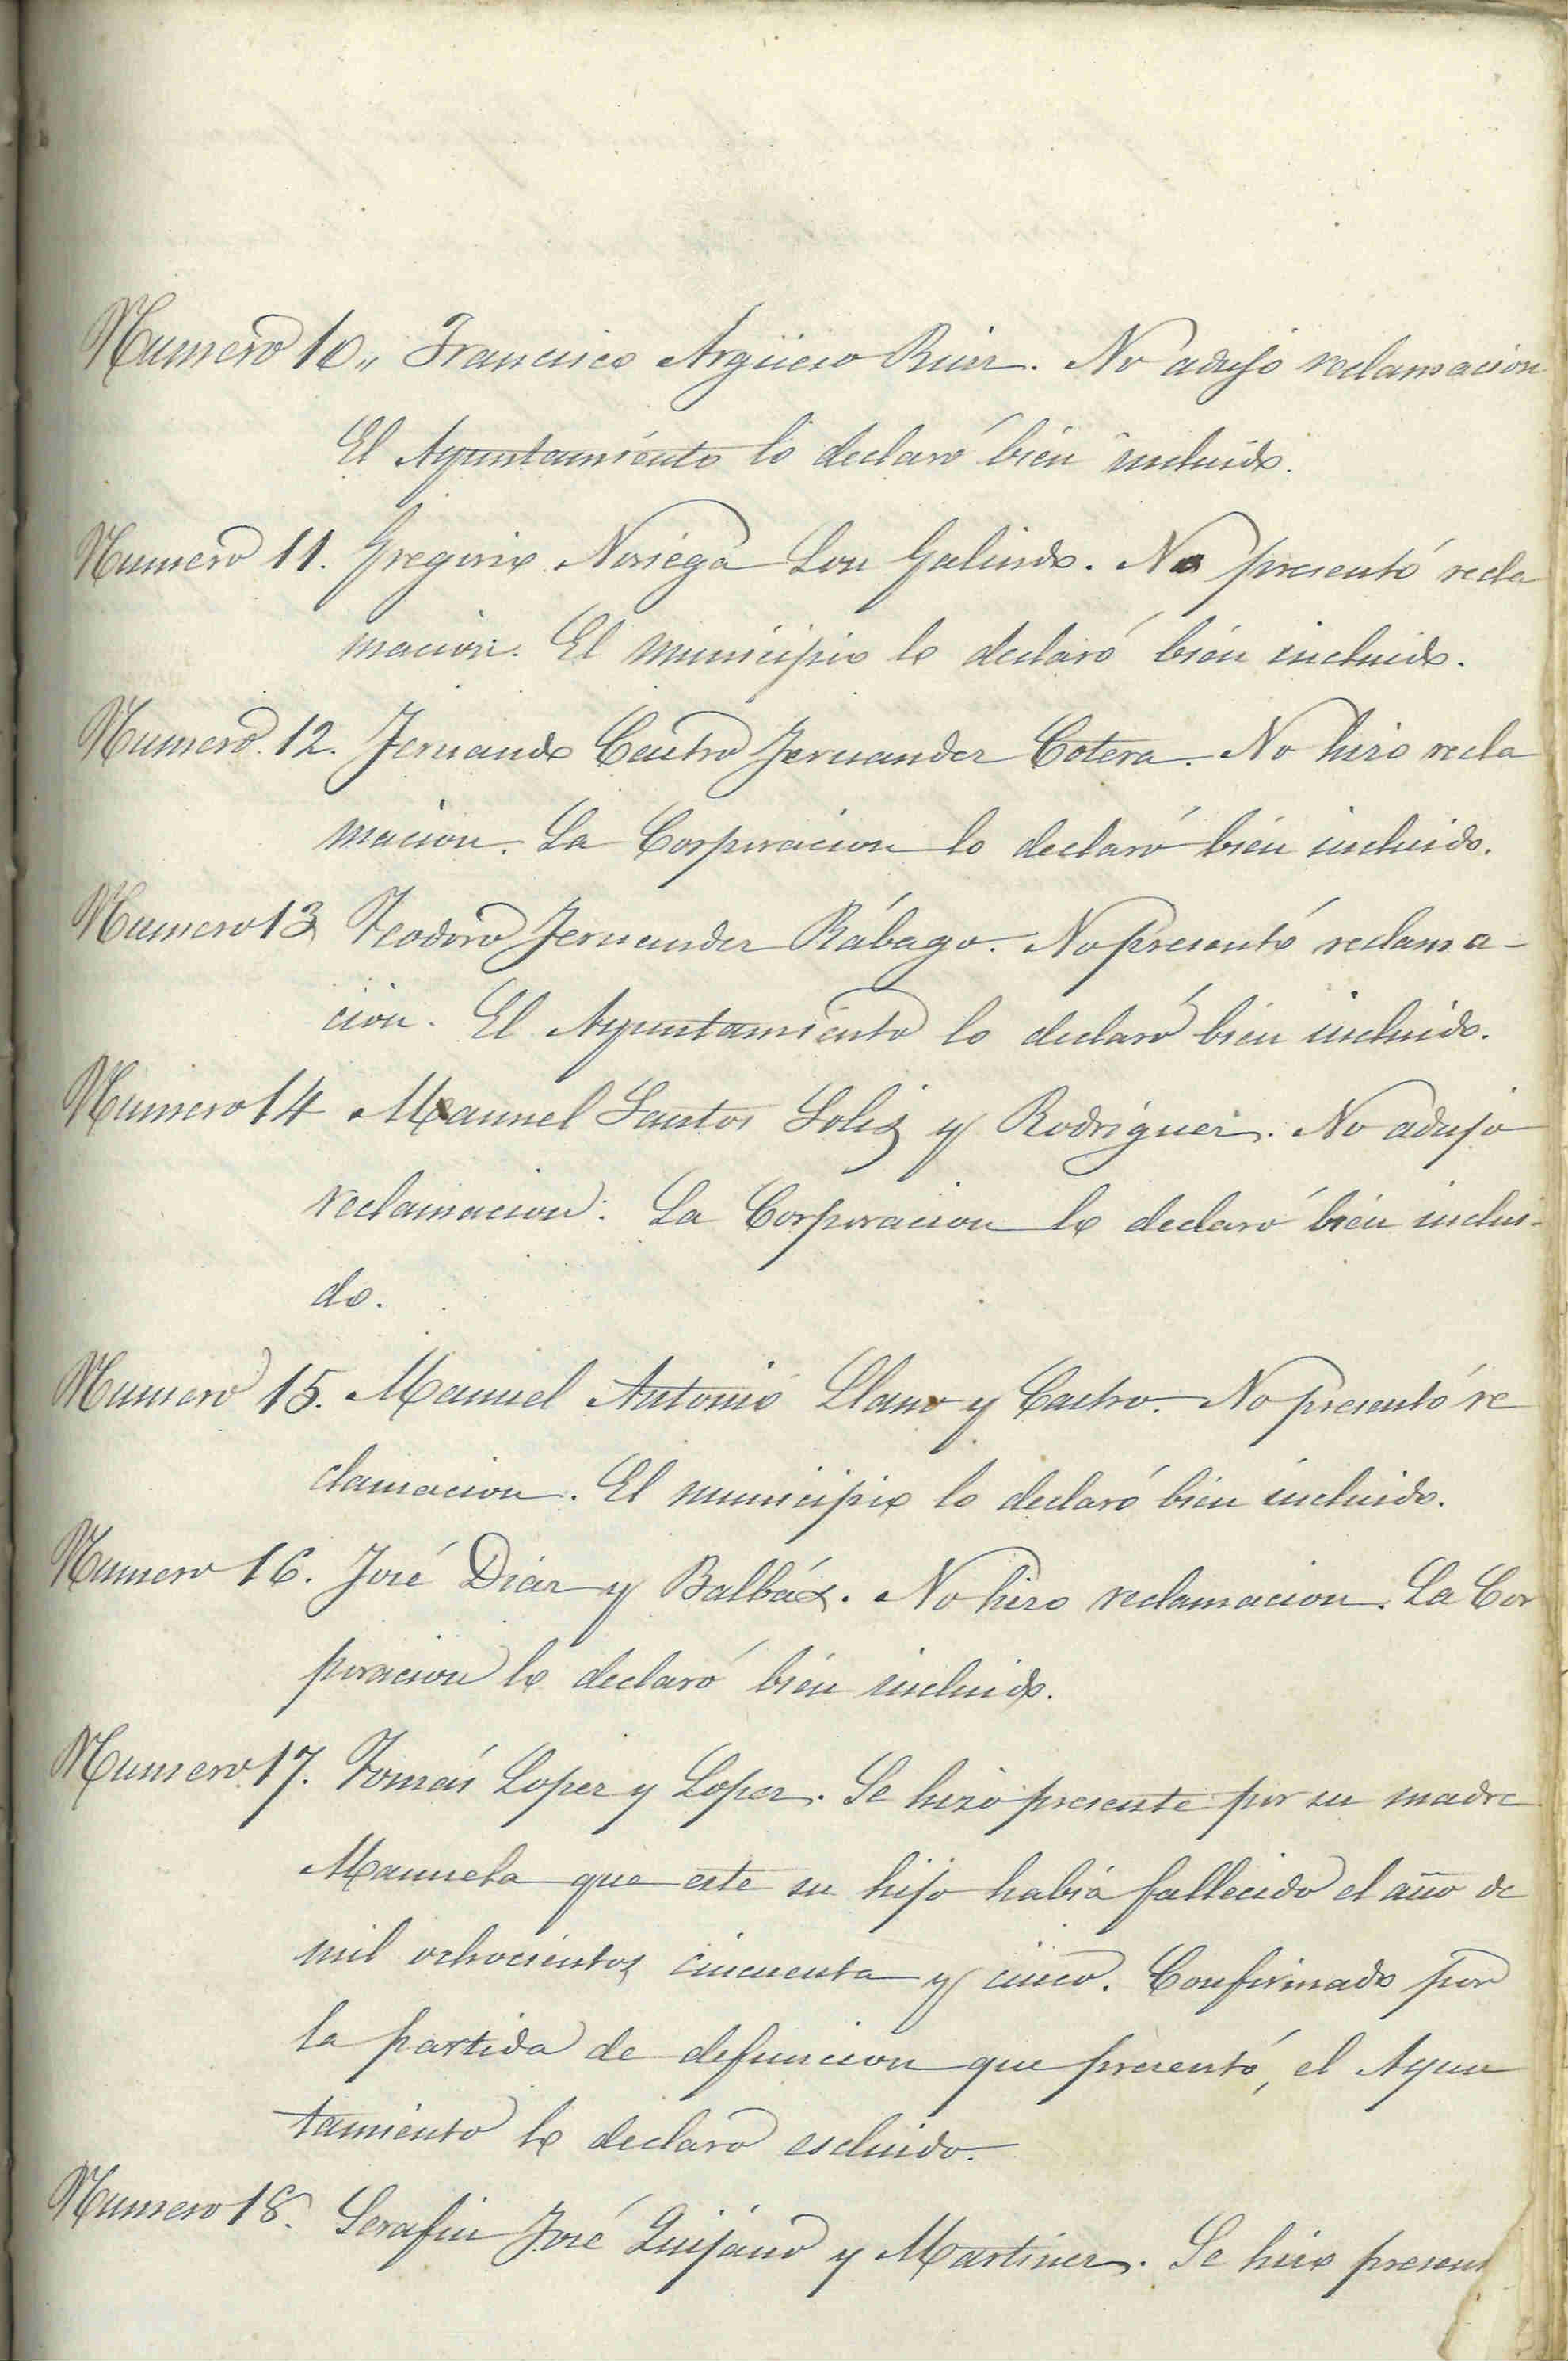 Numero 10,, Francisco Argüeso Ruiz. No adujo reclamacion
El Ayuntamiento lo declaró bien incluido.
Numero 11. Gregorio Noriega Lon Galindo. No presentó recla
macion. El municipio lo declaró bien incluido.
Numero 12. Fernando Castro Fernandez Cotera. No hizo recla
macion. La Corporacion lo declaró bien incluido.
Numero 13 Teodoro Fernandez Rábago. No presentó reclama-
cion. El Ayuntamiento lo declaró bien incluido.
Numero 14 Manuel Santos Solis y Rodriguez. No adujo
reclamacion. La Corporacion lo declaró bien inclui-
do.
Numero 15. Manuel Antonio Llano y Castro. No presentó re
clamacion. El municipio lo declaró bien incluido.
Numero 16. José Diaz y Balbás. No hizo reclamacion. La Cor
poracion lo declaró bien incluido.
Numero 17. Tomás Lopez y Lopez. Se hizo presente por su madre
Manuela que este su hijo habia fallecido el año de
mil ochocientos cincuenta y cinco. Confirmado por
la partida de defuncion que presentó, el Ayun
tamiento lo declaró escluido.
Numero 18. Serafin José Quijano y Martinez. Se hizo presen